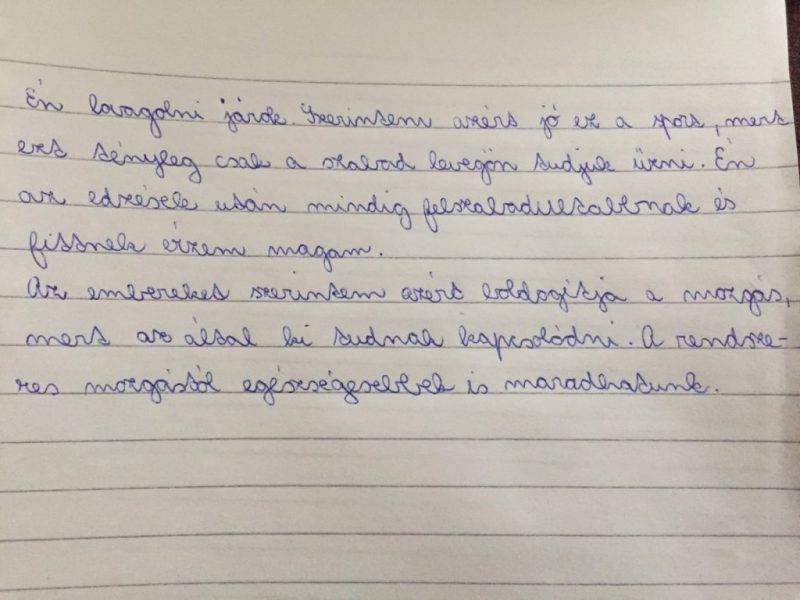 Én lovagolni járok. Szerintem azért jó ez a sport, mert
ezt tényleg csak a szabad levegőn tudjuk űzni. Én
az edzések után mindig felszabadultabbnak és
frissnek érzem magam.
Az embereket szerintem azért boldogítja a mozgás,
mert az által ki tudnak kapcsolódni. A rendsze-
res mozgástól egészségesebbek is maradhatunk.